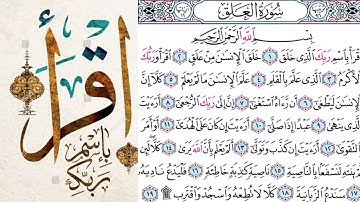 اقرأ
باسم
ربك
سُورَةُ الْعَلَقِ
بِسْمِ اللَّهِ الرَّحْمَٰنِ الرَّحِيمِ
اقْرَأْ بِاسْمِ رَبِّكَ الَّذِي خَلَقَ ١ خَلَقَ الْإِنسَانَ مِنْ عَلَقٍ ٢ اقْرَأْ وَرَبُّكَ
الْأَكْرَمُ ٣ الَّذِي عَلَّمَ بِالْقَلَمِ ٤ عَلَّمَ الْإِنسَانَ مَا لَمْ يَعْلَمْ ٥ كَلَّا إِنَّ
الْإِنسَانَ لَيَطْغَىٰ ٦ أَن رَّآهُ اسْتَغْنَىٰ ٧ إِنَّ إِلَىٰ رَبِّكَ الرُّجْعَىٰ ٨ أَرَأَيْتَ
الَّذِي يَنْهَىٰ ٩ عَبْدًا إِذَا صَلَّىٰ ١٠ أَرَأَيْتَ إِن كَانَ عَلَى الْهُدَىٰ ١١ أَوْ أَمَرَ
بِالتَّقْوَىٰ ١٢ أَرَأَيْتَ إِن كَذَّبَ وَتَوَلَّىٰ ١٣ أَلَمْ يَعْلَم بِأَنَّ اللَّهَ يَرَىٰ ١٤ كَلَّا لَئِن
لَّمْ يَنتَهِ لَنَسْفَعًا بِالنَّاصِيَةِ ١٥ نَاصِيَةٍ كَاذِبَةٍ خَاطِئَةٍ ١٦ فَلْيَدْعُ نَادِيَهُ
١٧ سَنَدْعُ الزَّبَانِيَةَ ١٨ كَلَّا لَا تُطِعْهُ وَاسْجُدْ وَاقْتَرِب ١٩